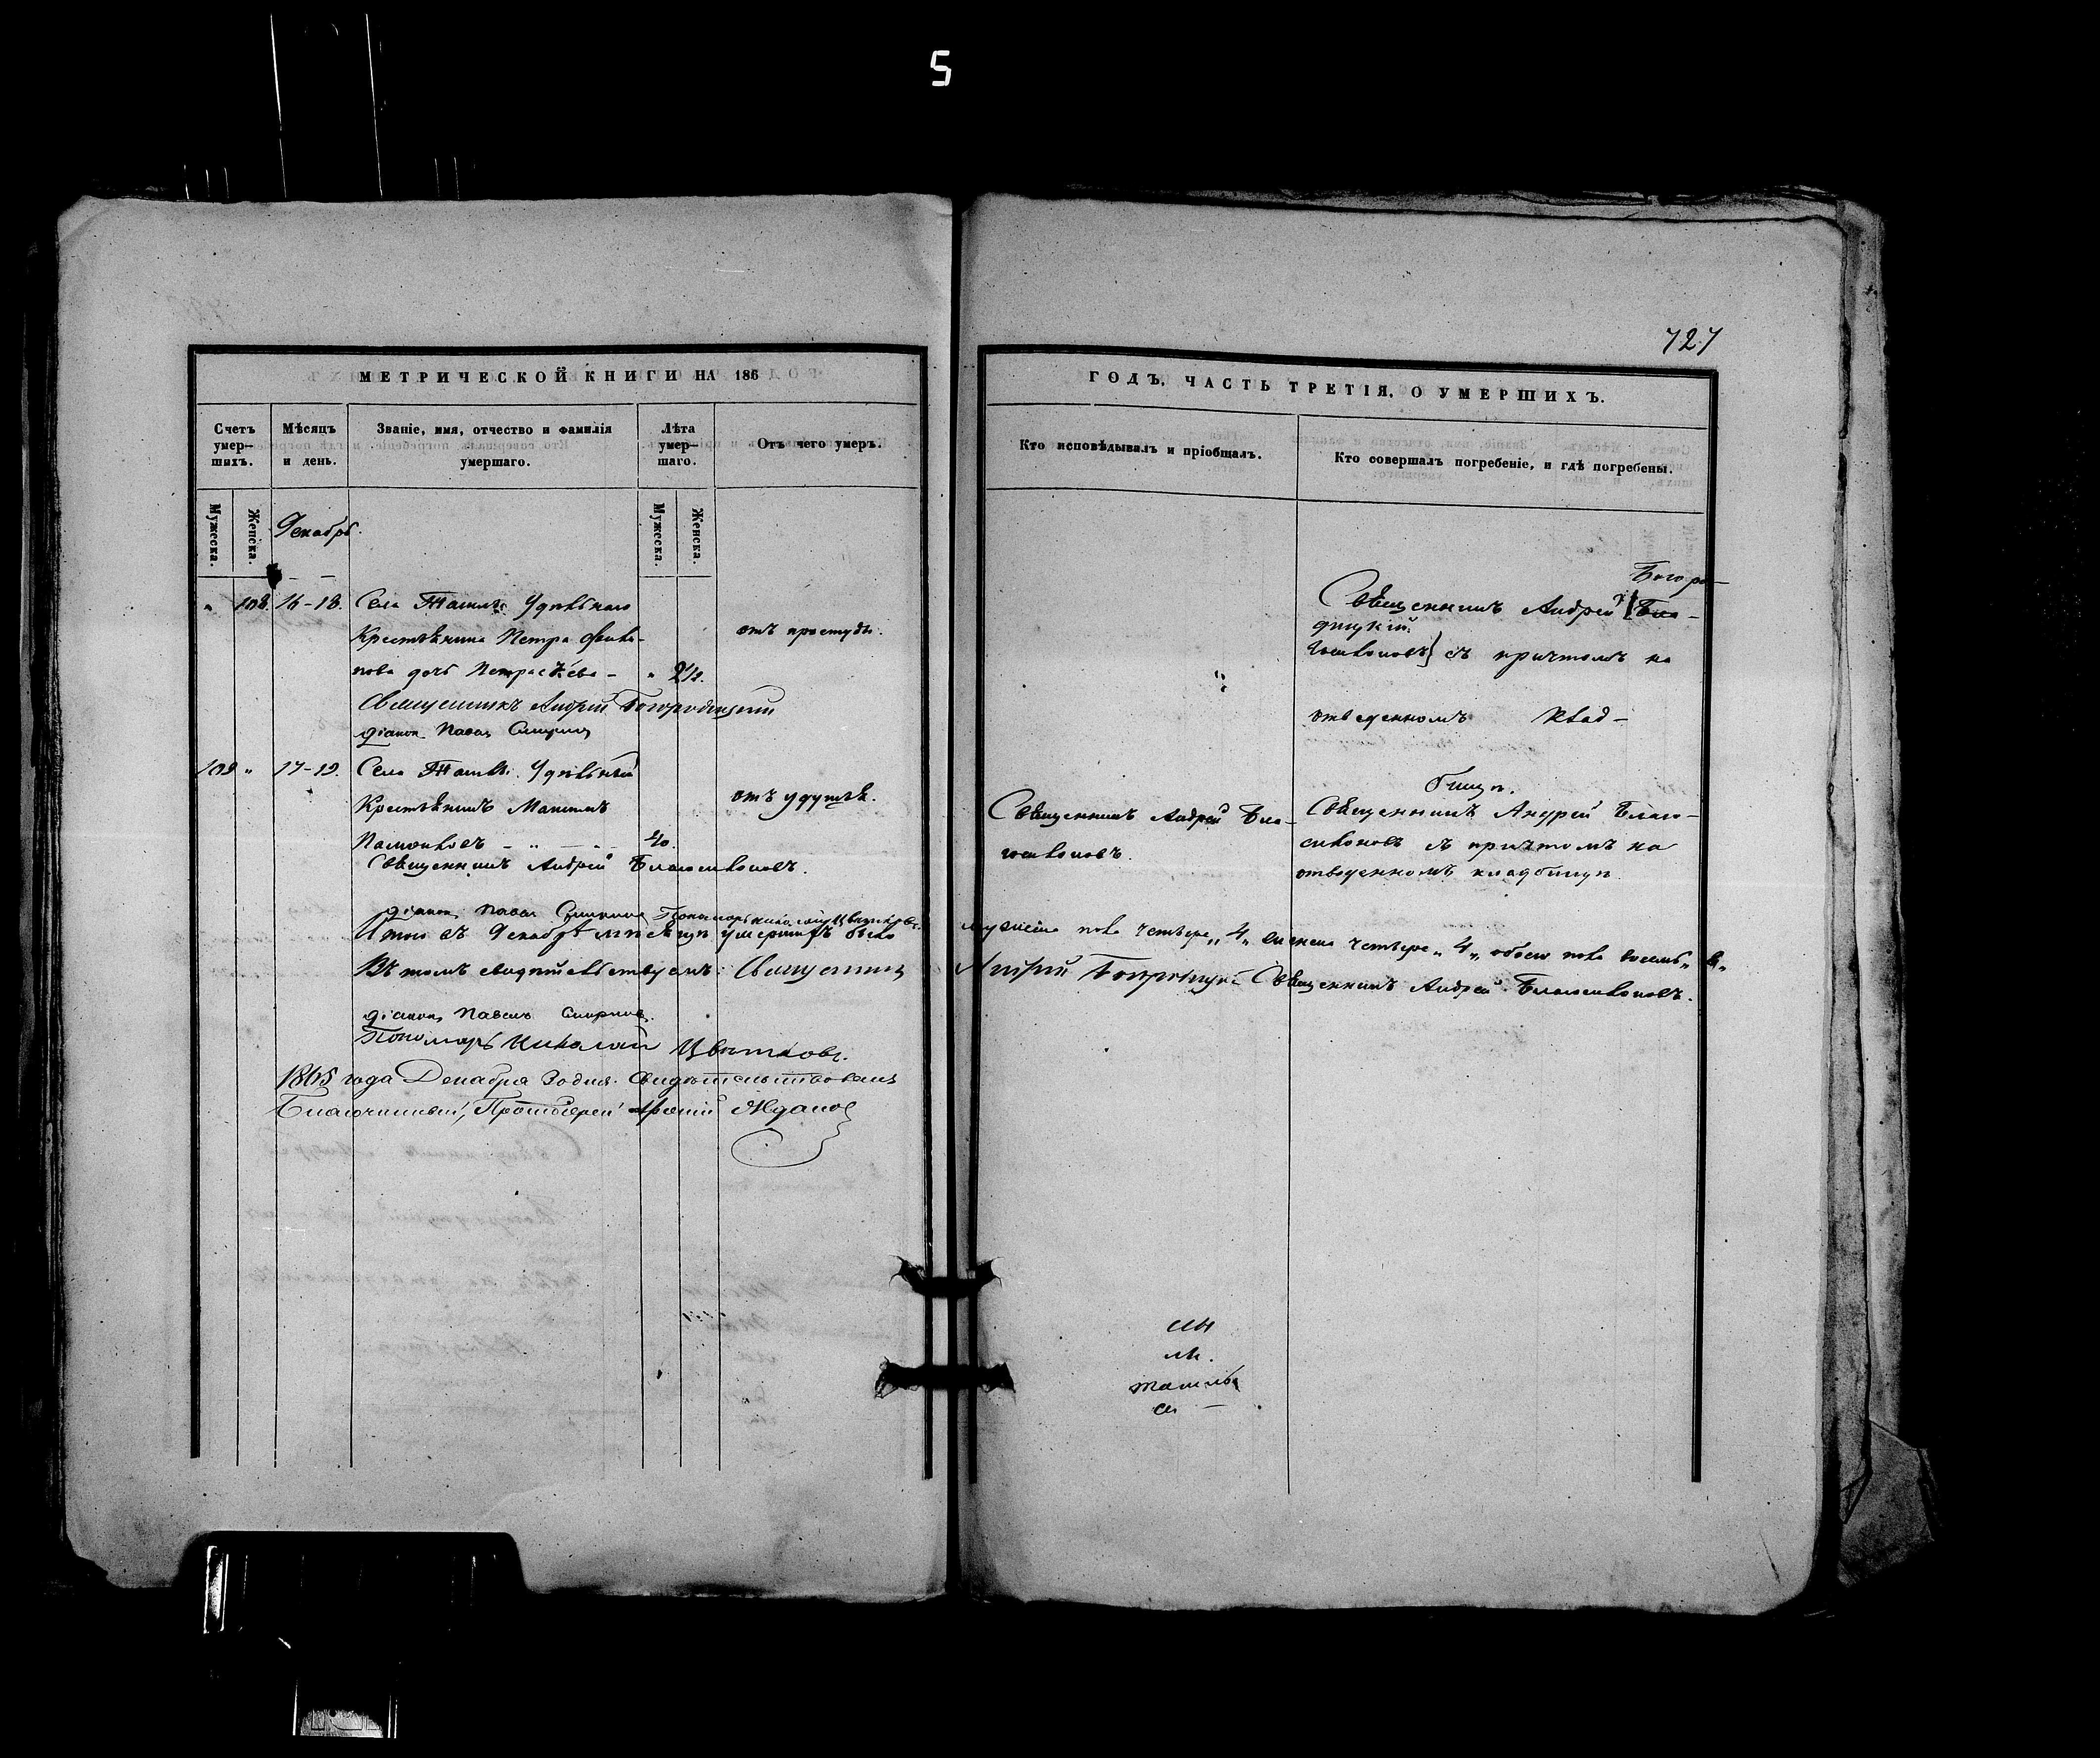 5
727
МЕТРИЧЕСКОЙ КНИГИ НА 186
ГОДЪ, ЧАСТЬ ТРЕТІЯ, О УМЕРШИХЪ.
Счетъ умер-шихъ.
Мѣсяцъ и день.
Званіе, имя, отчество и фамилія умершаго.
Лѣта умер-шаго.
Отъ чего умеръ.
Кто исповѣдывалъ и пріобщалъ.
Кто совершалъ погребеніе, и гдѣ погребены.
Мужеска.
Женска.
Декабрь.
Мужеска.
Женска.
" 108. 16-18. Села Удѣльнаго
Крестьянина Петра
дочь - "
отъ простуды.
Священникъ Андрей Богородицкій
діаконъ Павелъ Смирновъ
Богоро-
Священникъ Андрей
дицкій.
съ причтомъ на
отведенномъ клад-
бищѣ.
109 " 17-19. Села Удѣльный
Крестьянинъ Максимъ
40.
отъ удушья.
Священникъ Андрей Благосклоновъ.
діаконъ Павелъ Смирновъ Пономарь Николай Цвѣтковъ.
Священникъ Андрей Бла-
госклоновъ.
Священникъ Андрей Благо-
склоновъ съ причтомъ на
отведенномъ кладбищѣ
Итого въ Декабрѣ мѣсяцѣ умершихъ было
мужеска пола четыре „4„ женска четыре „4„ обоего пола восемь „8„
Въ томъ свидѣтельствуемъ: Священникъ
Андрей Богородицкій Священникъ Андрей Благосклоновъ.
діаконъ Павелъ Смирновъ.
Пономарь Николай Цвѣтковъ.
1865 года Декабря 30 дня. Свидѣтельствовалъ
Благочинный, Протоіерей Ждановъ